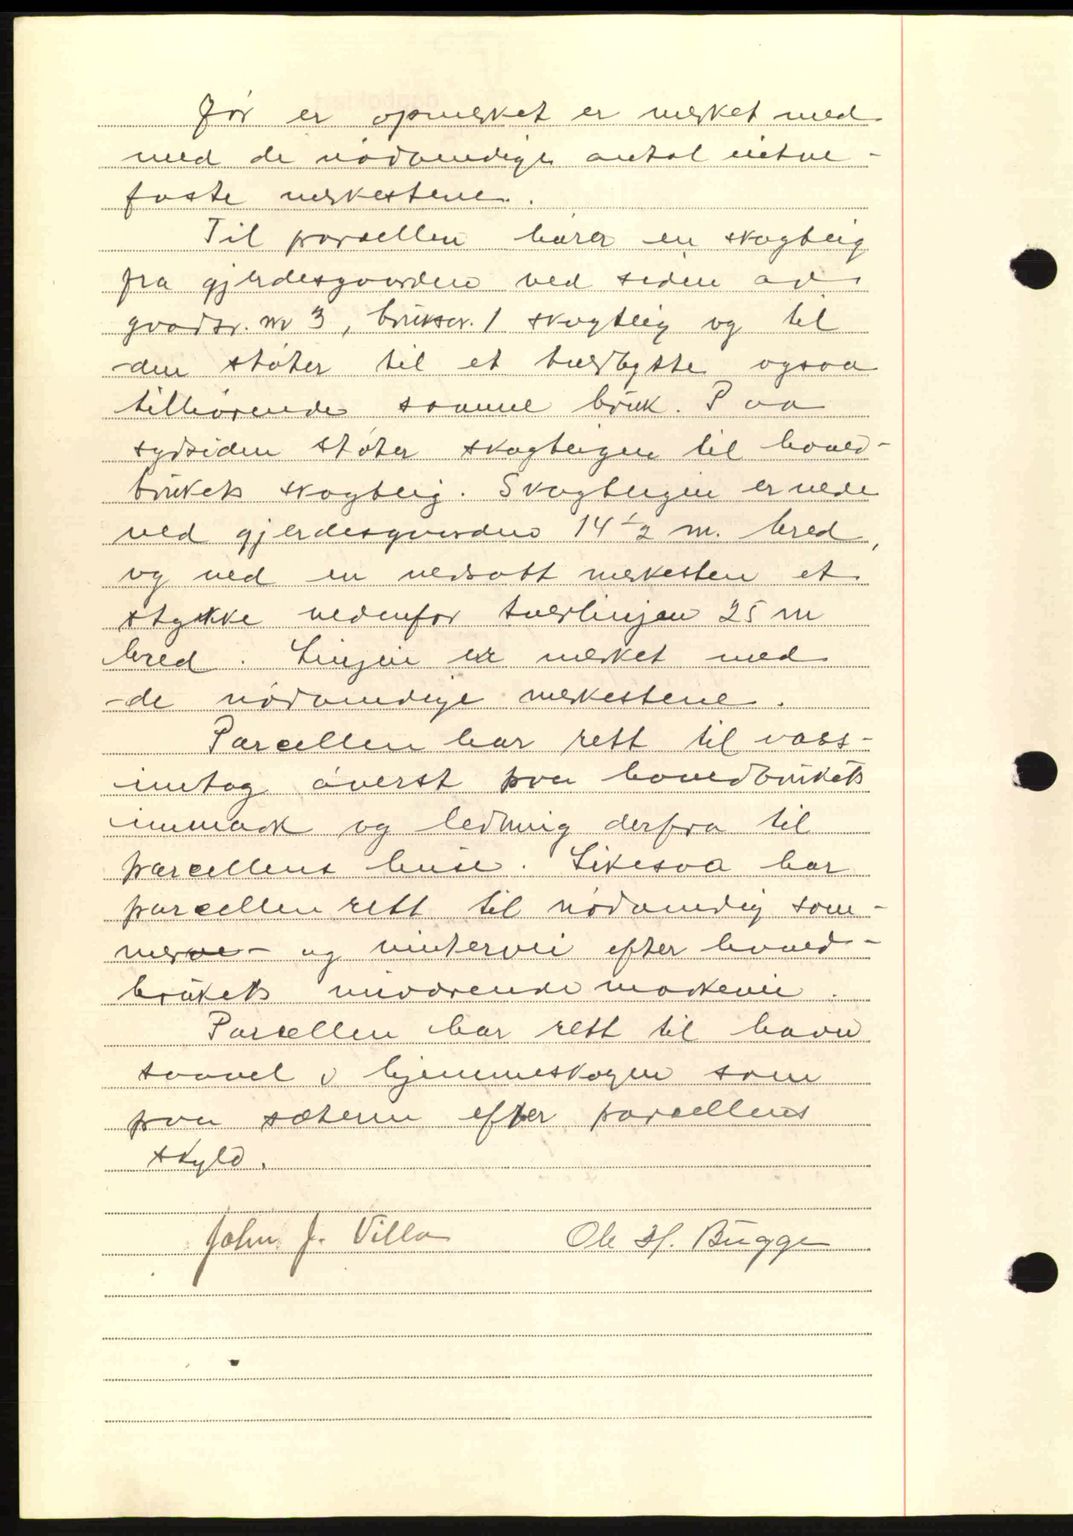 før er opmerket er merket med
med de nødvendige antal
faste merkestene.
Til parsellen hører en skogteig
fra gjerdesgaarden ved siden av
gaardsnr. nr 3, bruksnr. 1 skogteig og til
den støter til et ogsaa
tilhørende samme bruk. Paa
sydsiden støter skogteigen til hoved-
brukets skogteig. Skogteigen er nede
ved gjerdesgaarden 14 1/2 m. bred,
og ved en nedsatt merkesten et
stykke nedenfor tverlinjen 25 m
bred. Linjen er merket med
de nødvendige merkestene.
Parcellen har rett til vass-
inntag øverst paa hovedbrukets
innmark og ledning derfra til
parcellens huse. Likesaa har
parcellen rett til nødvendig som-
mer- og vintervei efter hoved-
brukets nuværende markevei.
Parcellen har rett til havn
saavel i hjemmeskogen som
paa sæteren efter parcellens
skyld.
John J. Villa Ole H. Bugge